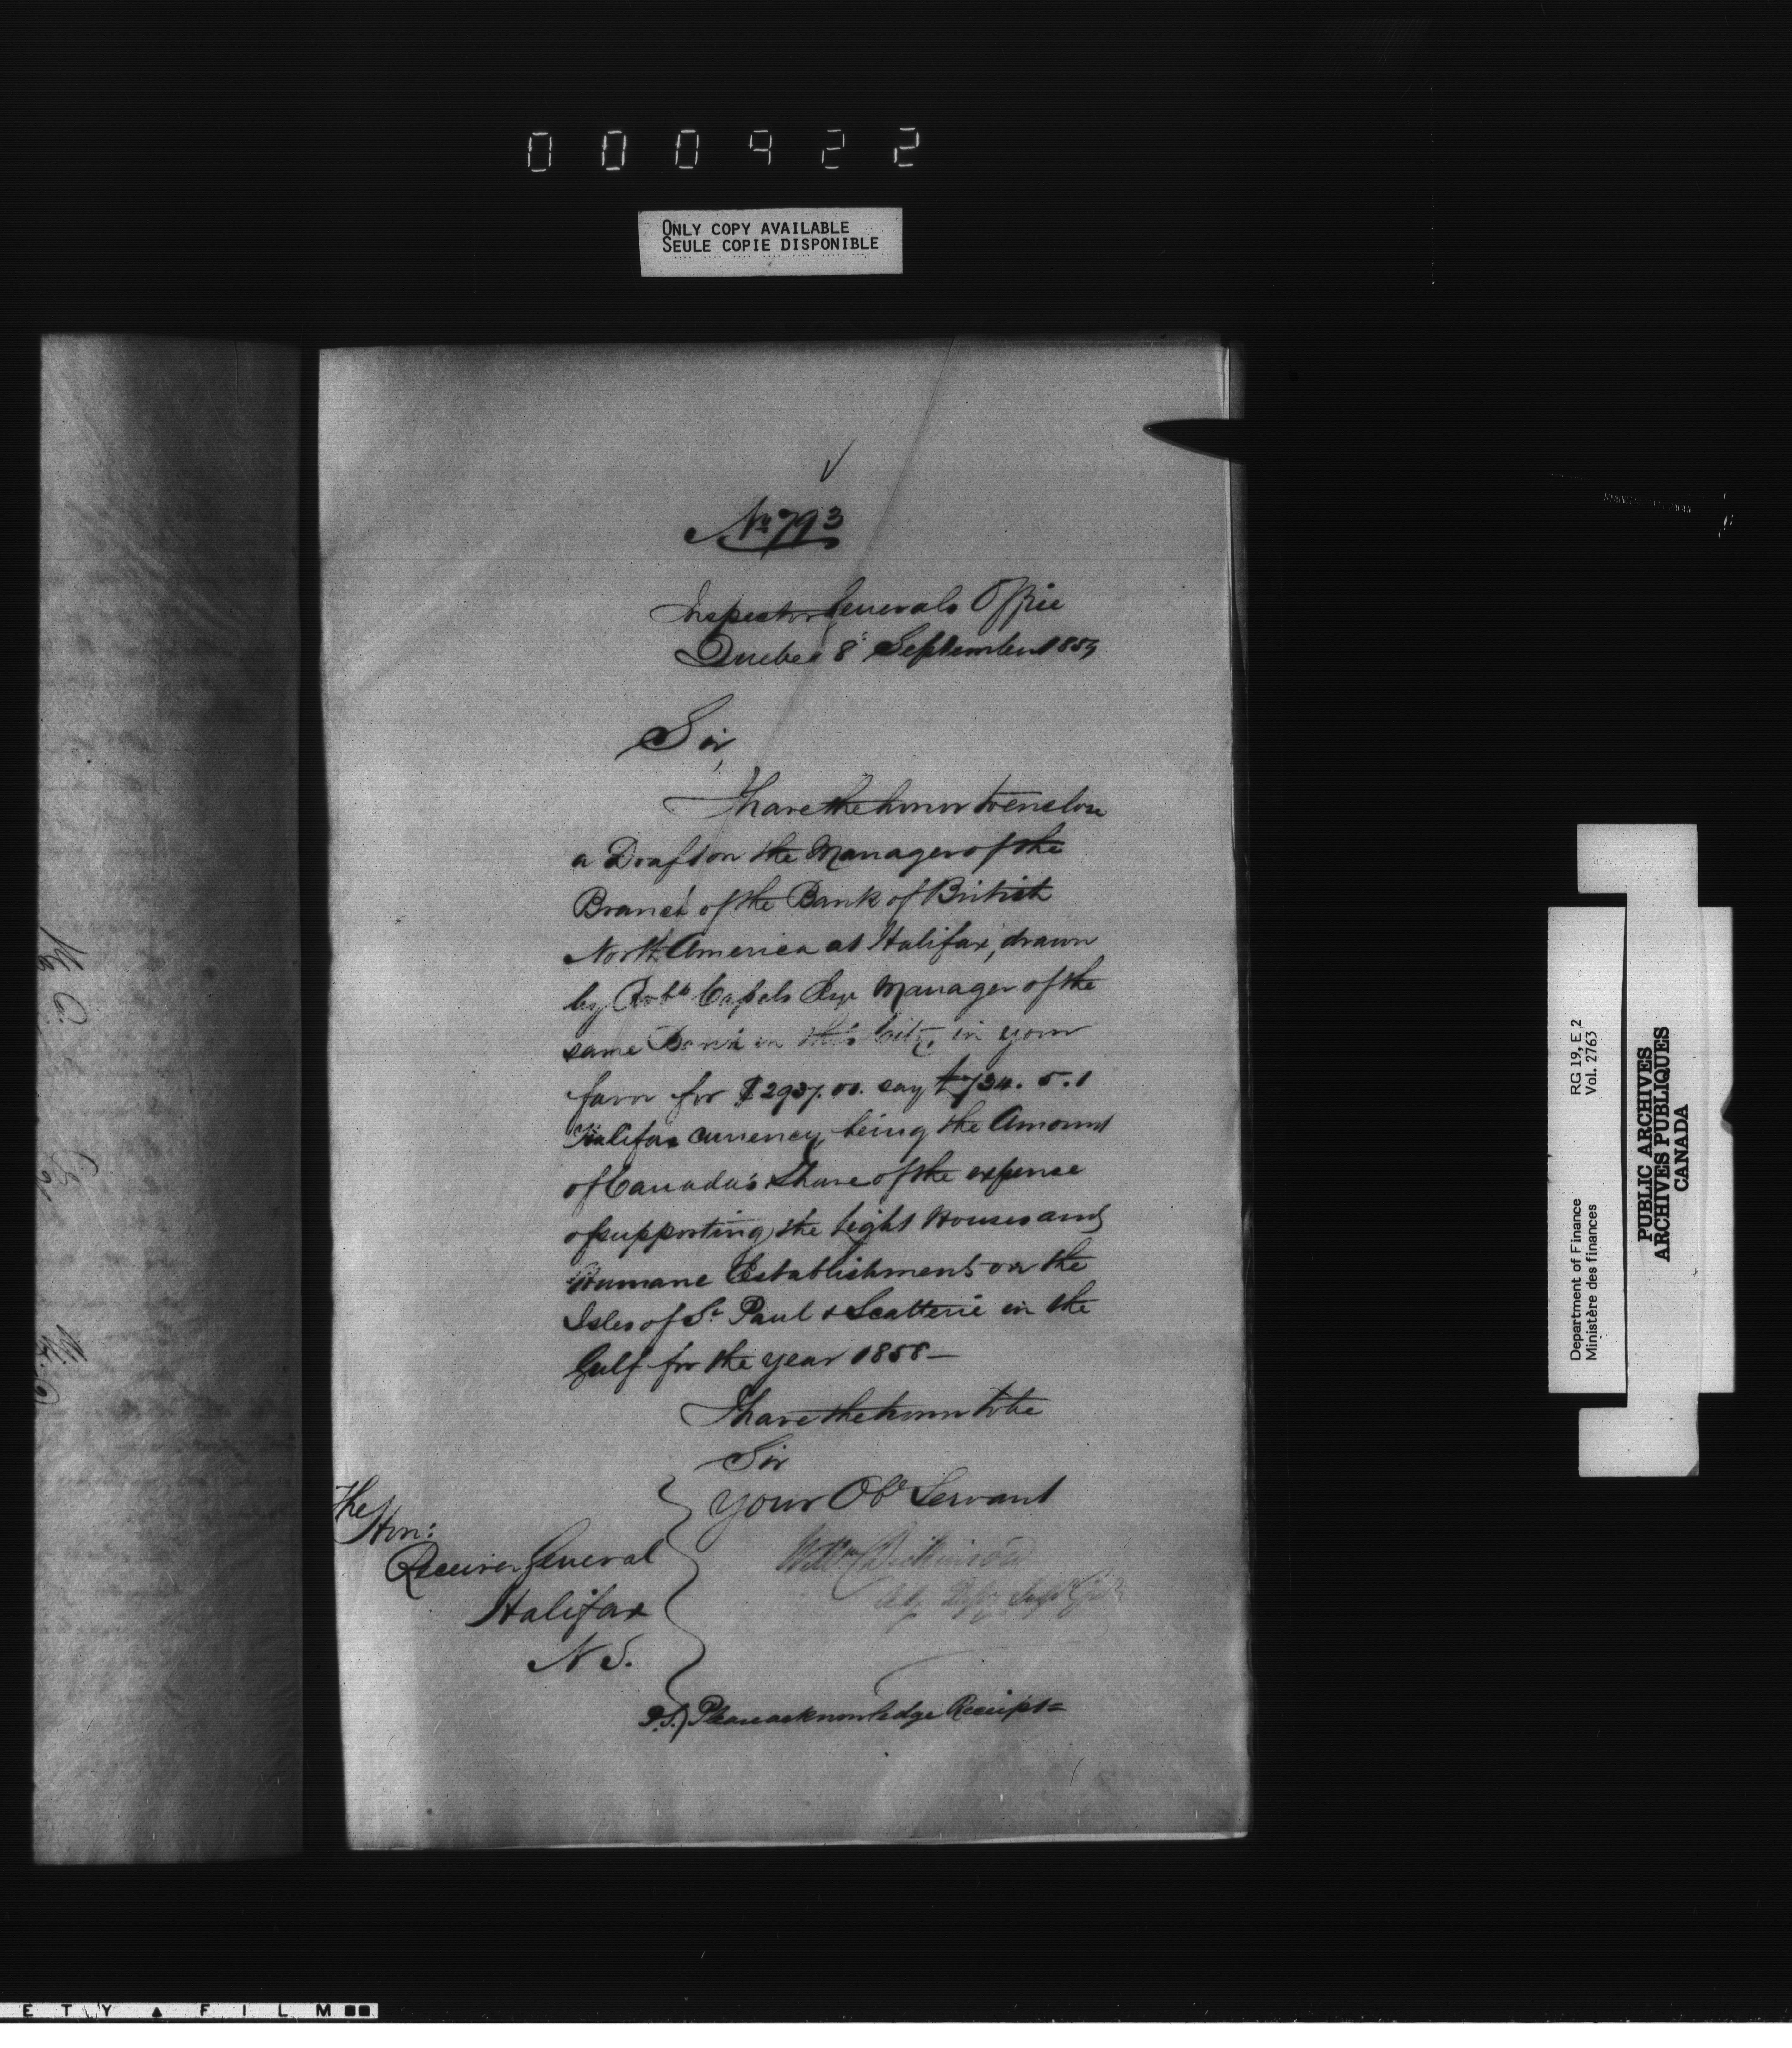 000422
ONLY COPY AVAILABLE
SEULE COPIE DISPONIBLE
No 793
Inspector Generals Office
Quebec 8th September 1859
Sir,
I have the honor to enclose
a Draft on the Manager of the
Branch of the Bank of British
North America at Halifax, drawn
by Robt Capels Esqr Manager of the
same Bank in this City, in your
favor for $2937.00. say £734. 5. 1
Halifax currency, being the Amount
of Canada's Share of the expense
of supporting the Light Houses and
Humane Establishments on the
Isles of St Paul & Scatterie in the
Gulf for the year 1858 —
I have the honor to be
Sir
Your Obt Servant
Wm Dickinson
Actg Depy Inspr Genl
The Hon:
Receiver General
Halifax
N S.
P.S.) Please acknowledge Receipt =
RG 19, E 2
Vol. 2763
Department of Finance
Ministère des finances
PUBLIC ARCHIVES
ARCHIVES PUBLIQUES
CANADA
E T Y ▲ F I L M